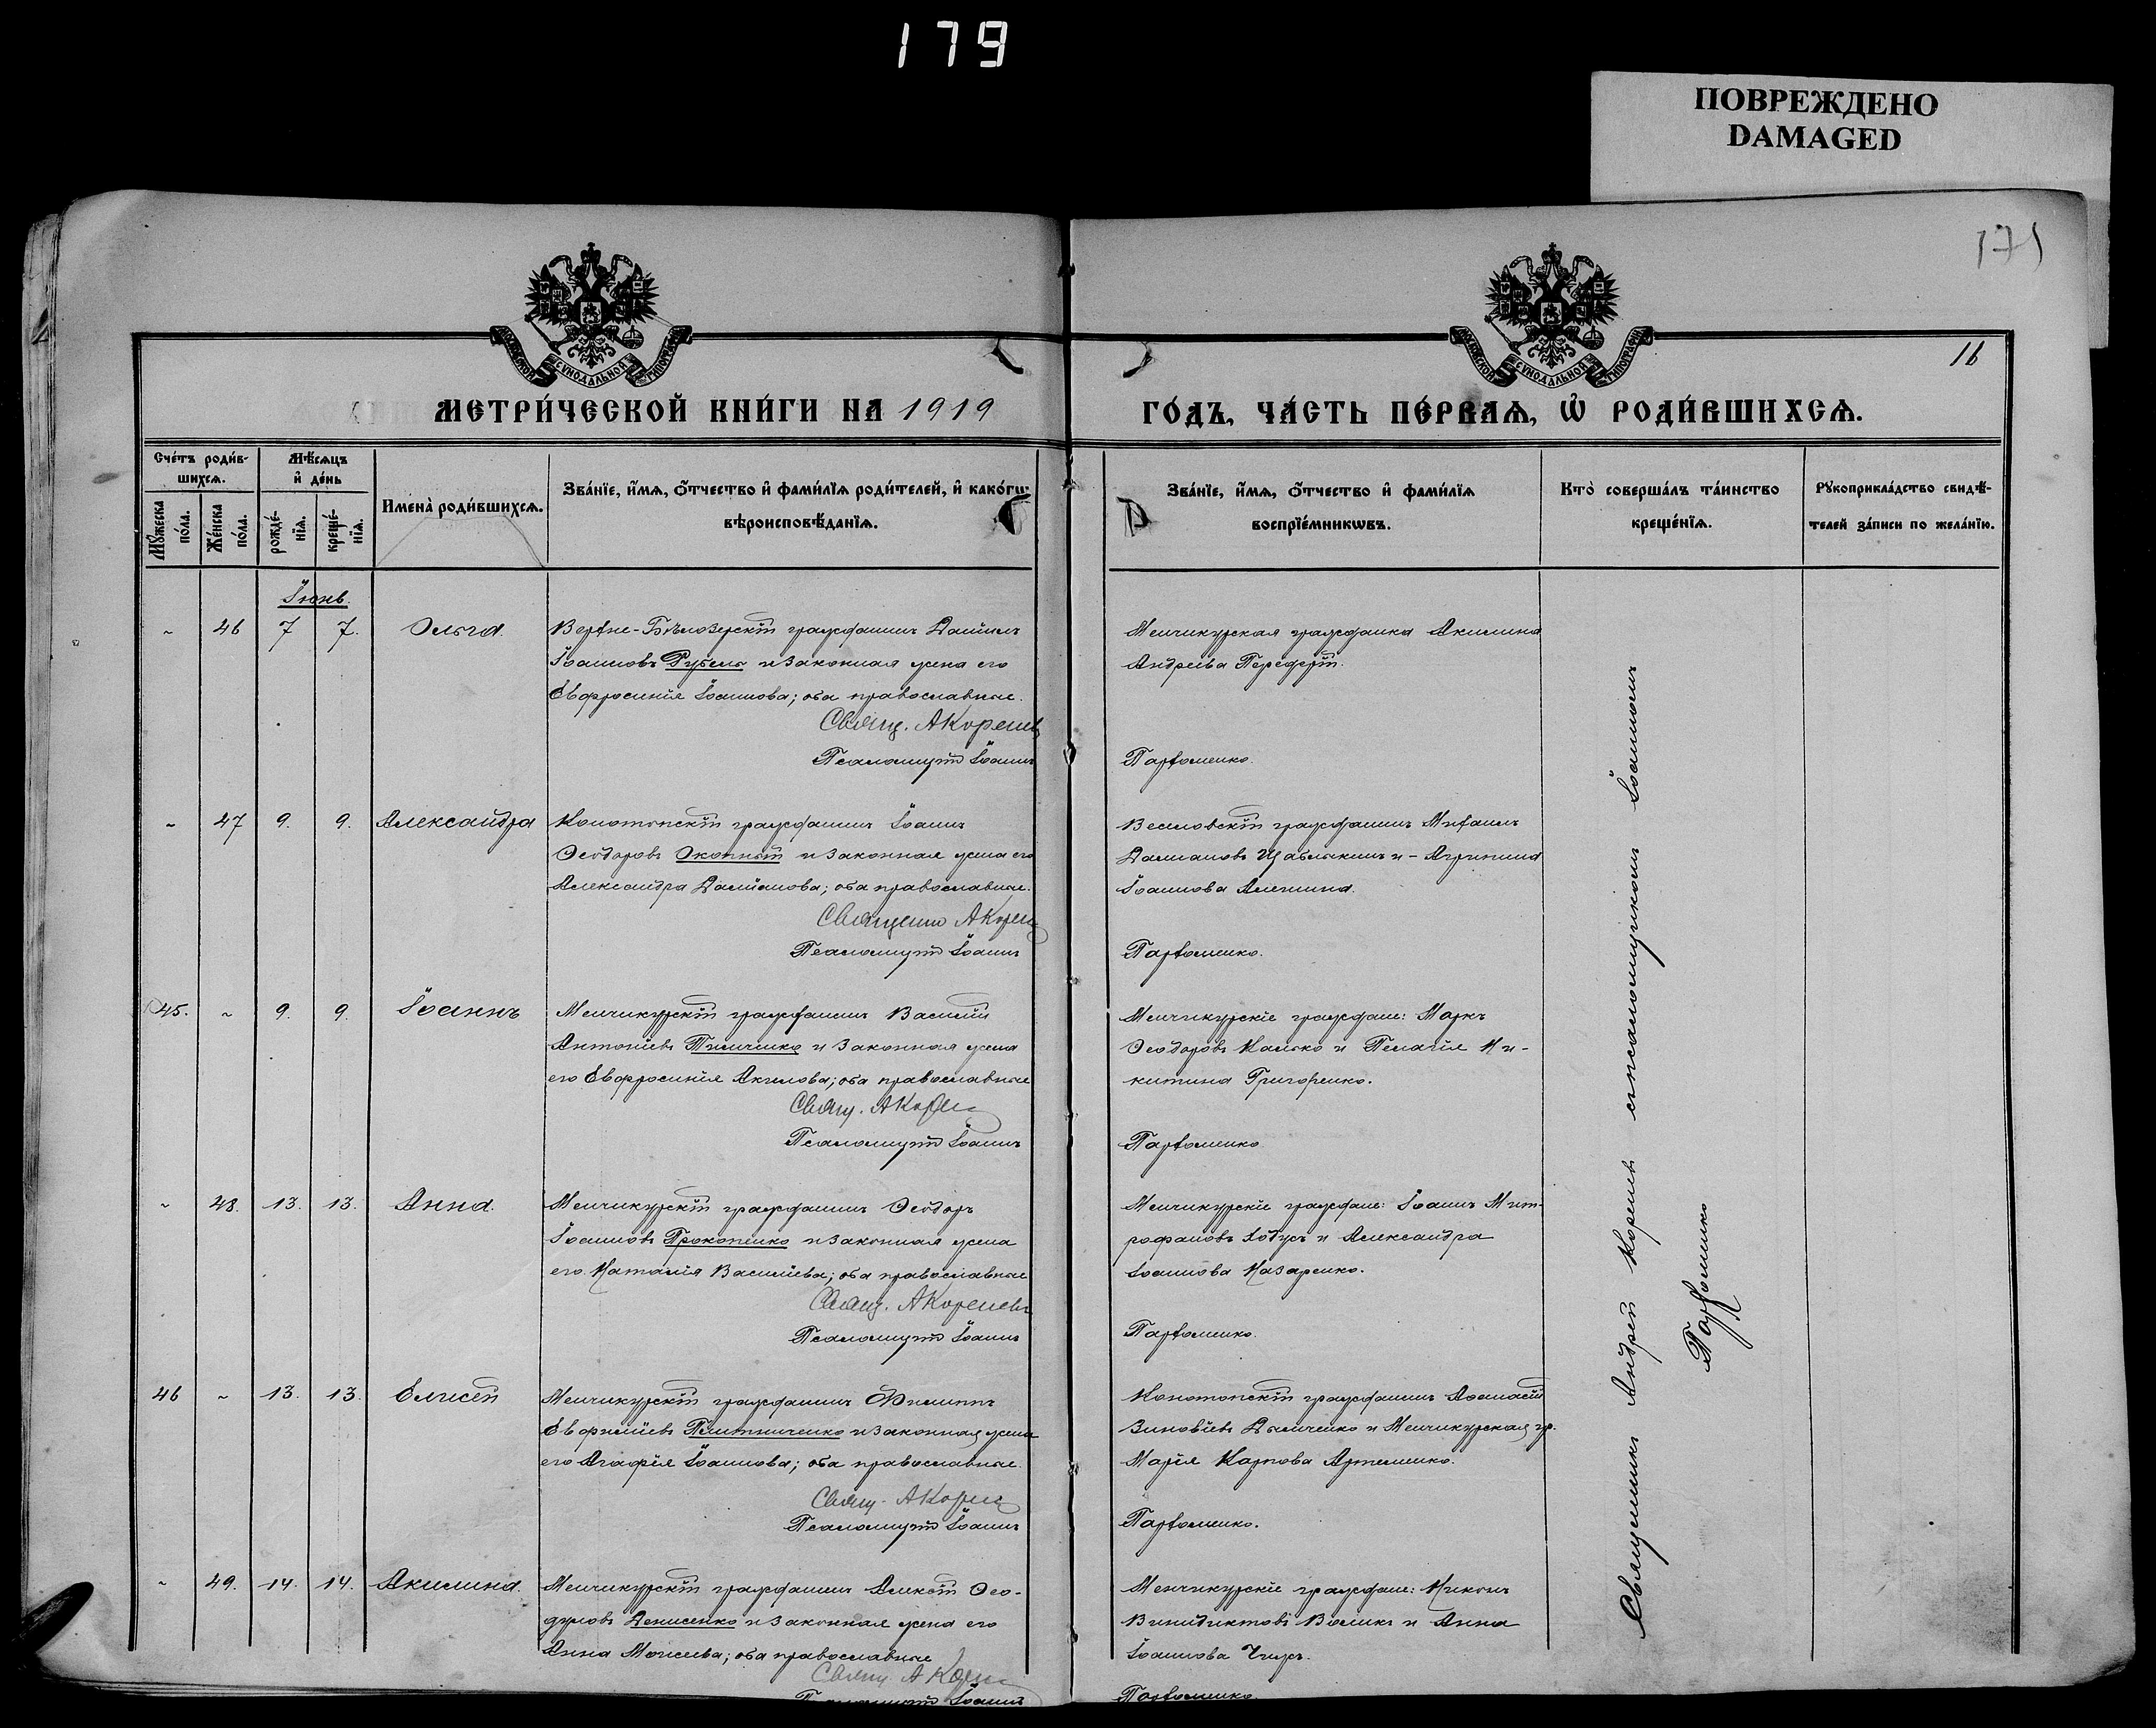 179
ПОВРЕЖДЕНО
DAMAGED
171
16
МОСКОВСКОЙ СУНОДАЛЬНОЙ ТИПОГРАФІИ
МОСКОВСКОЙ СУНОДАЛЬНОЙ ТИПОГРАФІИ
МЕТРИ́ЧЕСКОЙ КНИ́ГИ НА 1919
ГО́ДЪ, ЧА́СТЬ ПЕ́РВАѦ, Ѡ҆ РОДИ́ВШИХСѦ.
Сче́тъ роди́в-
шихсѧ.
Мѣ́сѧцъ
и҆ де́нь
Мꙋ́жеска по́ла.
Же́нска по́ла.
рожде́-
нїѧ.
креще́-
нїѧ.
И҆мена̀ роди́вшихсѧ.
Зва́нїе, и҆́мѧ, ѻ҆́тчество и҆ фами́лїѧ роди́телей, и҆ како́гѡ
вѣроисповѣ́данїѧ.
Зва́нїе, и҆́мѧ, ѻ҆́тчество и҆ фами́лїѧ
воспрїе́мникѡвъ.
Кто̀ соверша́лъ та́инство
креще́нїѧ.
Рꙋкоприкла́дство свидѣ́-
телей за́писи по жела́нїю.
Іюнь.
~ 46 7 7. Ольга.
Верхне-Бѣлозерскій гражданинъ Даніилъ
Іоанновъ Рубель и законная жена его
Евфросинія Іоаннова; оба православные.
Свящ. А Кореневъ
Псаломщикъ Іоаннъ
Менчикурская гражданка Акилина
Андреева
Пархоменко.
~ 47 9. 9. Александра
Конотопскій гражданинъ Іоаннъ
Ѳеодоровъ Окопный и законная жена его
Александра Даміанова; оба православные.
Священник А Корен
Псаломщикъ Іоаннъ
Веселовскій гражданинъ Михаилъ
Даміановъ и – Агрипина
Іоаннова Алешина.
Пархоменко.
45. ~ 9. 9. Іоаннъ
Менчикурскій гражданинъ Василій
Антоніевъ Тимченко и законная жена
его Евфросинія Акилова; оба православные
Свящ. А Корен
Псаломщикъ Іоаннъ
Менчикурскіе граждане: Маркъ
Ѳеодоровъ Калько и Пелагія Ни-
китина Григоренко.
Пархоменко
~ 48. 13. 13. Анна.
Менчикурскій гражданинъ Ѳеодоръ
Іоанновъ Прокопенко и законная жена
его Наталія Васильева; оба православные
Свящ. А Кореневъ
Псаломщикъ Іоаннъ
Менчикурскіе граждане: Іоаннъ Мит-
рофановъ и Александра
Іоаннова Назаренко.
Пархоменко.
46 ~ 13. 13. Елисей
Менчикурскій гражданинъ Филиппъ
Евфиміевъ Плитниченко и законная жена
его Агафія Іоаннова; оба православные.
Свящ. А Корен
Псаломщикъ Іоаннъ
Конотопскій гражданинъ Аѳанасій
Зиновіевъ Дымченко и Менчикурская гр.
Марія Карпова Артеменко.
Пархоменко.
~ 49. 14. 14. Акилина.
Менчикурскій гражданинъ Алексѣй Ѳео-
дуловъ Денисенко и законная жена его
Анна Моисеева; оба православные
Свящ. А Корен
Псаломщикъ Іоаннъ
Менчикурскіе граждане: Никонъ
Винидиктовъ Воликъ и Анна
Іоаннова
Пархоменко
Священникъ Андрей Кореневъ съ псаломщикомъ Іоанномъ
Пархоменко